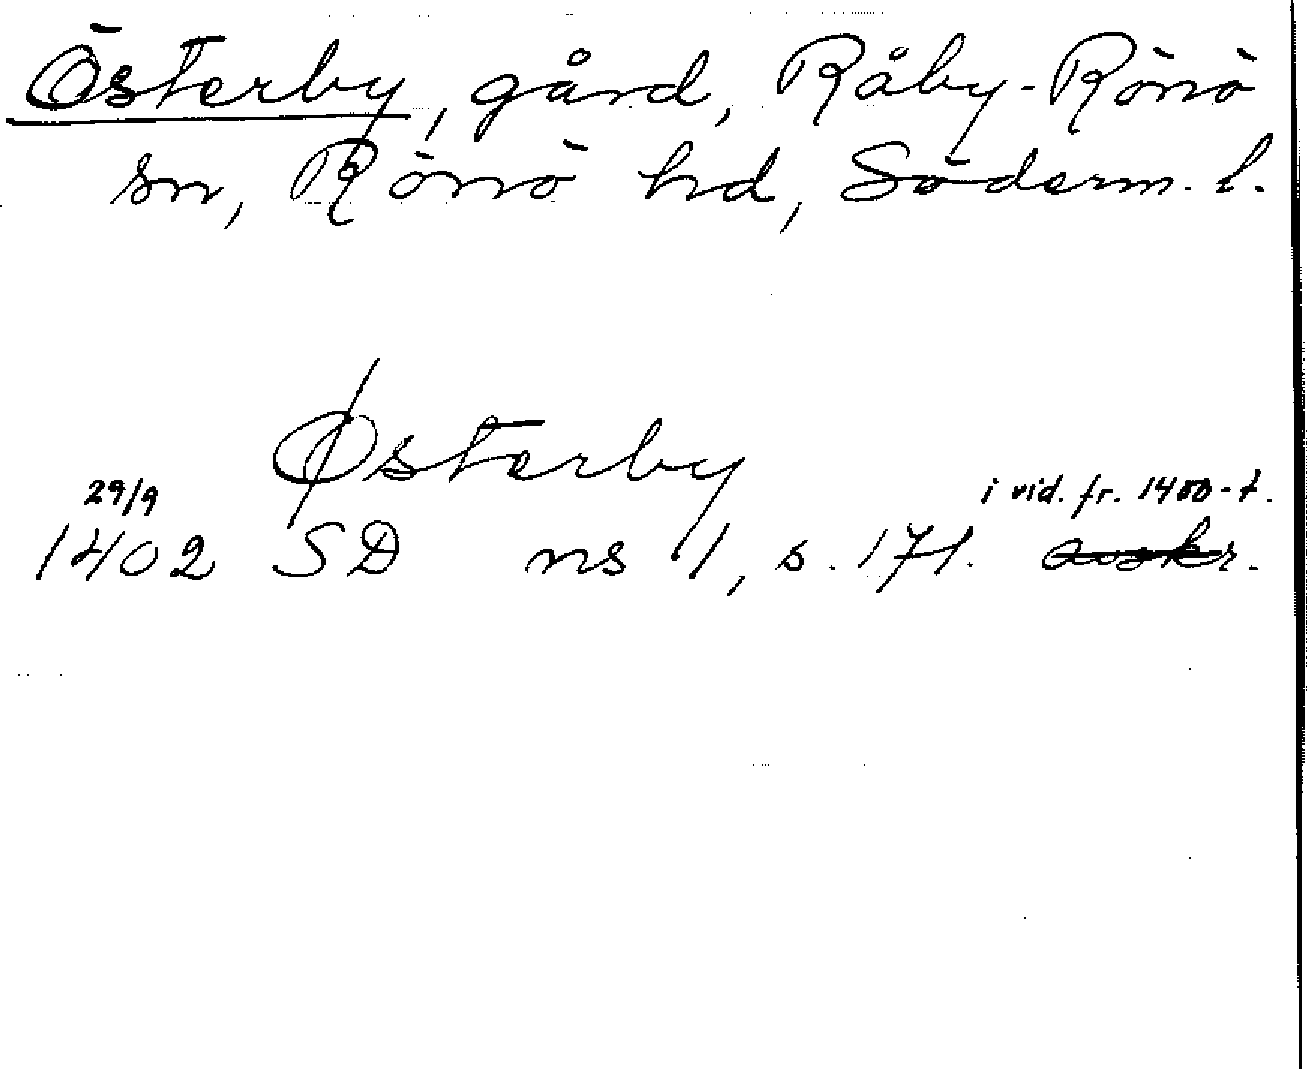 Österby, gård, Råby-Rönö
sn, Rönö hd, Söderm. l.
Østerby
29/9 i vid. fr. 1400-t.
1402 SD ns 1, s. 171. avskr.